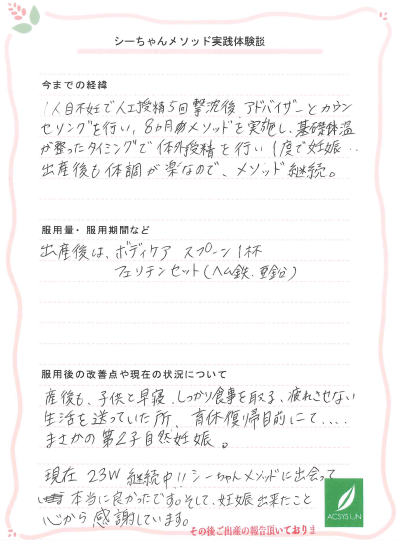 シーちゃんメソッド実践体験談
今までの経緯
1人目不妊で人工授精5回撃沈後、アドバイザーとカウン
セリングを行い、8カ月間メソッドを実施し、基礎体温
が整ったタイミングで体外授精を行い1度で妊娠…
出産後も体調が楽なので、メソッド継続。
服用量・服用期間など
出産後は、ボディケア スプーン1杯
フェリチンセット(ヘム鉄、亜鉛)
服用後の改善点や現在の状況について
産後も、子供と早寝、しっかり食事を取る、疲れさせない
生活を送っていた所、育休復帰目前にて....
まさかの第2子自然妊娠。
現在 23W 継続中!! シーちゃんメソッドに出会って
本当に良かったです。そして、妊娠出来たこと
心から感謝しています。
ACSYSUN
その後ご出産の報告頂いております